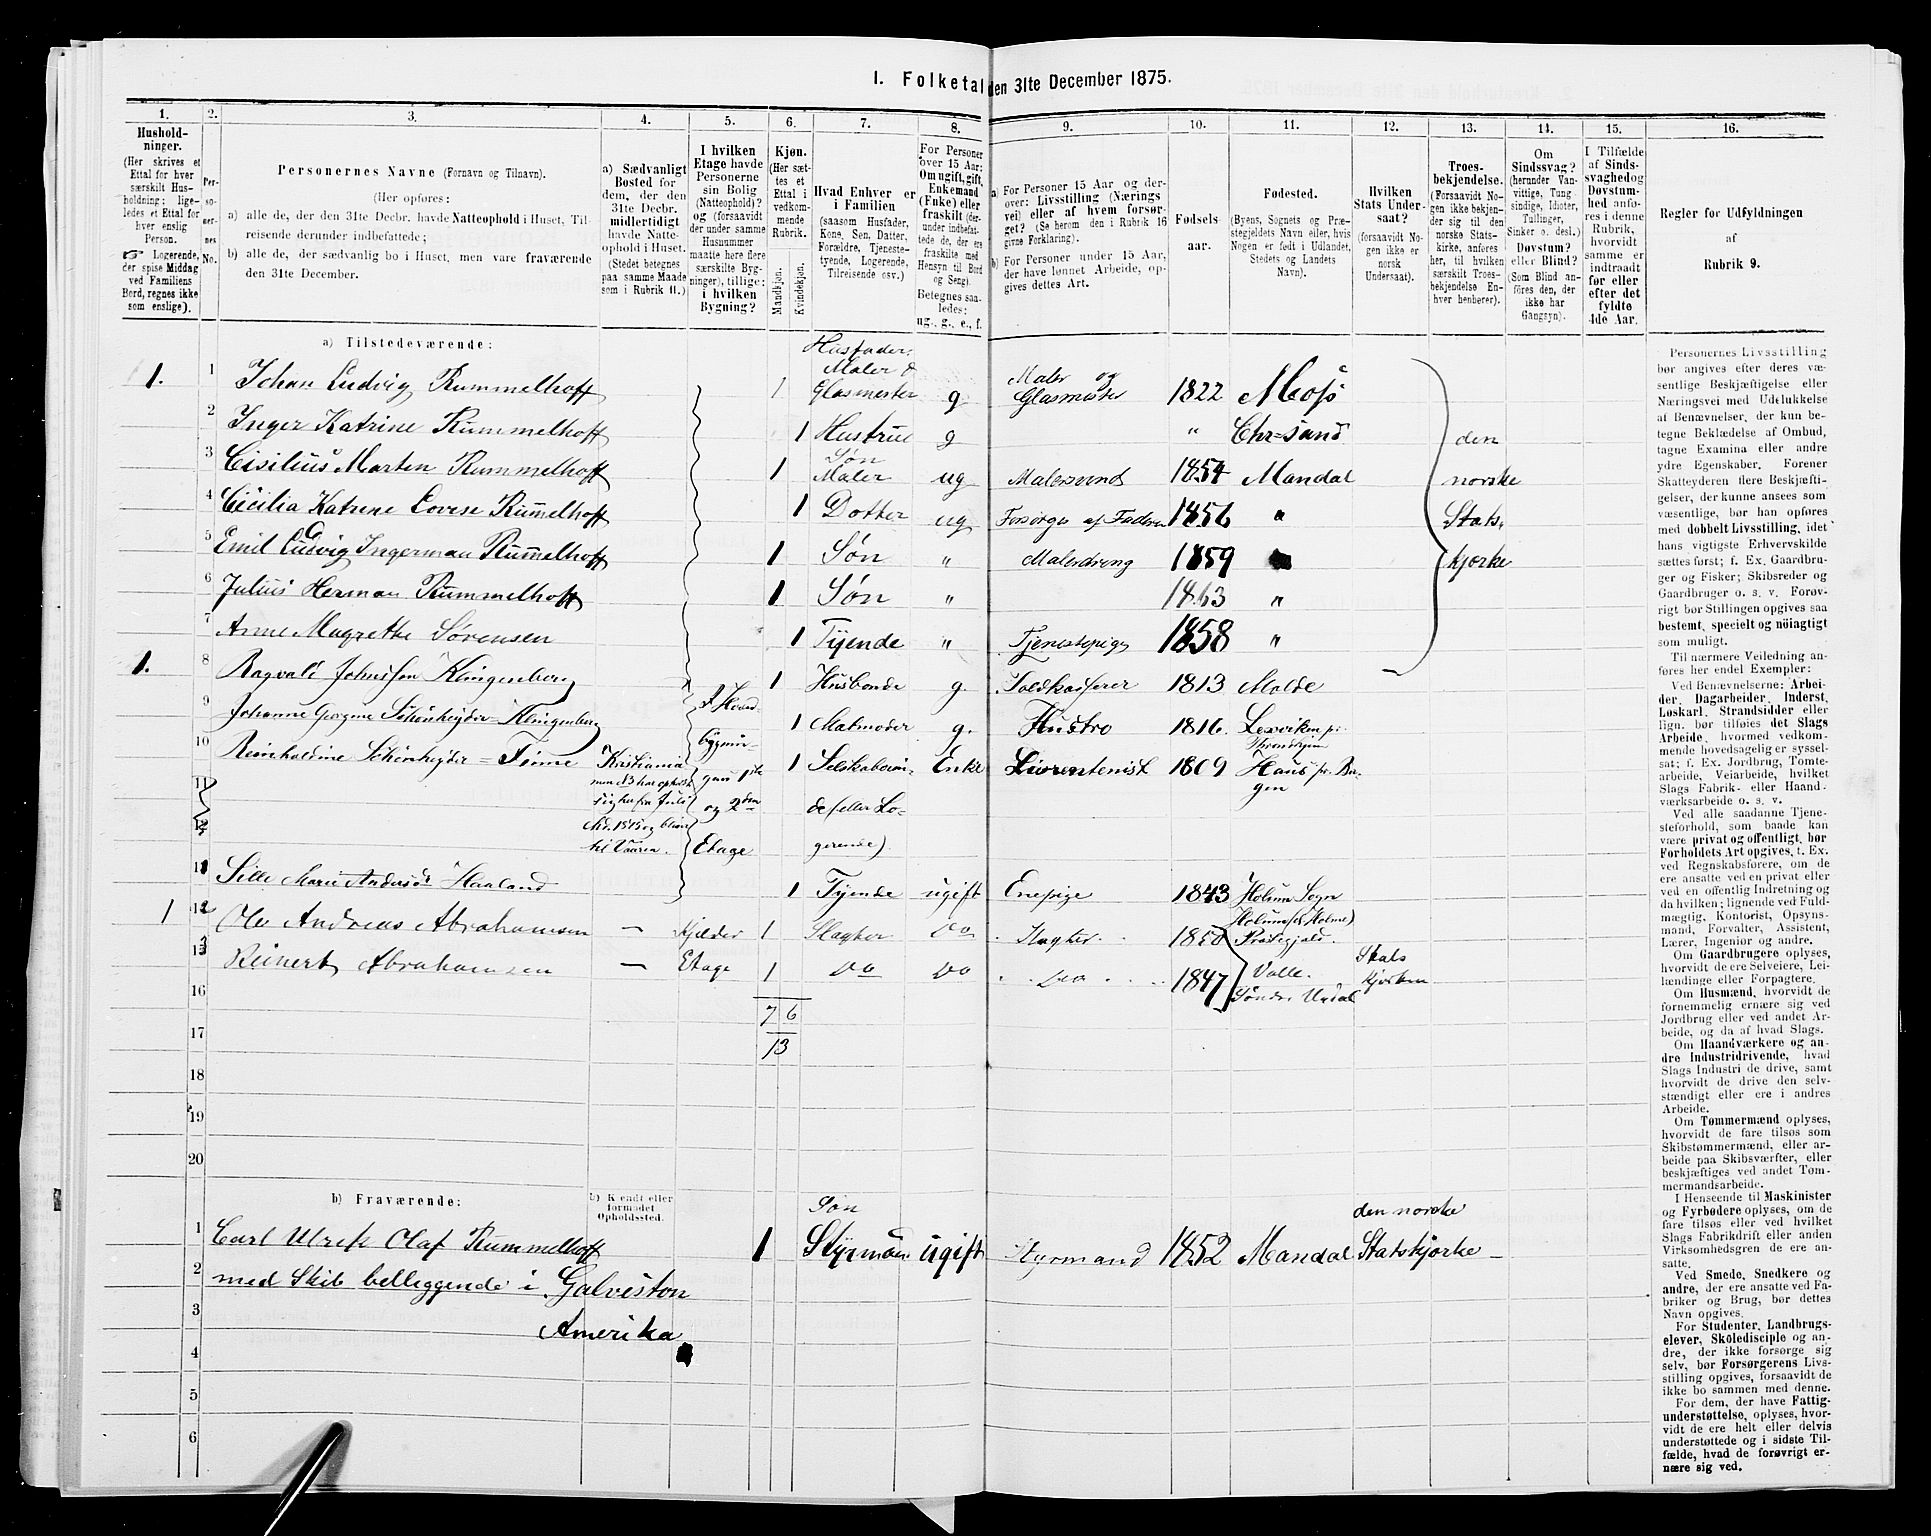 1. Folketal den 31te December 1875.
1.
2.
3.
4.
5.
6.
7.
8.
9.
10.
11.
12.
13.
14.
15.
16.
Hushold-
ninger.
(Her skrives et
Ettal for hver
særskilt Hus-
holdning; lige-
ledes et Ettal for
hver enslig
Person.
☞ Logerende,
der spise Middag
ved Familiens
Bord, regnes ikke
som enslige).
Per-
so-
ner-
nes
No.
Personernes Navne (Fornavn og Tilnavn).
(Her opføres:
a) alle de, der den 31te Decbr. havde Natteophold i Huset, Til-
reisende derunder indbefattede;
b) alle de, der sædvanlig bo i Huset, men vare fraværende
den 31te December.
a) Sædvanligt
Bosted for
dem, der den
31te Decbr.
midlertidigt
havde Natte-
ophold i Huset.
(Stedet betegnes
paa samme Maade
som i Rubrik 11.)
I hvilken
Etage havde
Personerne
sin Bolig
(Natteophold)?
og (forsaavidt
der under samme
Husnummer
maatte høre flere
særskilte Byg-
ninger), tillige:
i hvilken
Bygning?
Kjøn.
(Her sæt-
tes et
Ettal i
vedkom-
mende
Rubrik.
Mandkjøn.
Kvindekjøn.
Hvad Enhver er
i Familien
(saasom Husfader,
Kone, Søn, Datter,
Forældre, Tjeneste-
tyende, Logerende,
Tilreisende osv.)
For Personer
over 15 Aar:
Om ugift, gift,
Enkemand
(Enke) eller
fraskilt (der-
under indbefat-
tede de, der ere
fraskilte med
Hensyn til Bord
og Seng).
Betegnes saa-
ledes:
ug., g., e., f.
a) For Personer 15 Aar og der-
over: Livsstilling (Nærings
vei) eller af hvem forsør-
get? (Se herom den i Rubrik 16
givne Forklaring).
b) For Personer under 15 Aar,
der have lønnet Arbeide, op-
gives dettes Art.
Fødsels-
aar.
Fødested.
(Byens, Sognets og Præ-
stegjeldets Navn eller, hvis
Nogen er født i Udlandet,
Stedets og Landets
Navn).
Hvilken
Stats Under-
saat?
(forsaavidt No-
gen ikke er
norsk
Undersaat).
Troes-
bekjendelse.
(Forsaavidt No-
gen ikke bekjen-
der sig til den
norske Stats-
kirke, anføres
her, til hvilken
særskilt Troes-
bekjendelse En-
hver henhører).
Om
Sindssvag?
(herunder Van-
vittige, Tung-
sindige, Idioter,
Tullinger,
Sinker o. desl.)
Døvstum?
eller Blind?
(Som Blind an-
føres den, der
ikke har
Gangsyn).
I Tilfælde
af Sinds-
svaghed og
Døvstum-
hed anfø-
res i denne
Rubrik,
hvorvidt
samme er
indtraadt
før eller
efter det
fyldte
4de Aar.
Regler for Udfyldningen
af
Rubrik 9.
a) Tilstedeværende:
1. 1 Johan Ludvig Rummelhoff 1 Husfader, Maler & Glasmester g Maler og Glasmester 1822 Moss
2 Inger Katrine Rummelhoff 1 Hustrue g " Chr=sand den
3 Cisilius Marten Rummelhoff 1 Søn Maler ug Malersvend 1854 Mandal norske
4 Cicilia Katrine Lovise Rummelhoff 1 Dotter ug Forsørges af Fadren 1856 " Stats
5 Emil Ludvig Ingerman Rummelhoff 1 Søn " Malerdreng 1859 kjørke
6 Julius Herman Rummelhoff 1 Søn " 1863 "
7 Anne Magrethe Sørensen 1 Tyende " Tjenestepige 1858 "
1. 8 Ragvald Johnssen Klingenberg 1 Husbonde g. Toldkasserer 1813 Molde
9 Johanne Georgine Schønheyder Klingenberg 1 Matmoder g. Hustro 1816. Lexviken pr. Throndhjem
10 Reinholdine Schønheyder = Finne Kristiania 1 Enke Livrentenist 1809 Haus pr. Ber-
gen
11
12
og 2den
Etage
de (eller Lo-
gerende).
11 Sille Marie Andersdr Haaland 1 Tyende ugift Enepige 1843 Holum Sogn
1 12 Ole Andreas Abrahamsen – Kjelder 1 Slagter Do Slagter 1850
13 Reinert Abrahamsen – Etage 1 Do Do Do 1847 Valle. Søndre Undal Stats kjørken
16
7 6
17
13
18
19
20
b) Fraværende:
b) Kjendt eller
formodet
Opholdssted.
1 Carl Ulrik Olaf Rummelhoff 1 Søn Styrman ugift Styrmand 1852 Mandal den norske Statskjørke –
2 med Skib belleggende i Galveston
3 Amerika
4
5
6
Personernes Livsstilling
bør angives efter deres væ-
sentlige Beskjæftigelse eller
Næringsvei med Udelukkelse
af Benævnelser, der kun be-
tegne Beklædelse af Ombud,
tagne Examina eller andre
ydre Egenskaber. Forener
Skatteyderen flere Beskjæfti-
gelser, der kunne ansees som
væsentlige, bør han opføres
med dobbelt Livsstilling, idet
hans vigtigste Erhvervskilde
sættes først; f. Ex. Gaardbru-
ger og Fisker; Skibsreder og
Gaardbruger o. s. v. Forøv-
rigt bør Stillingen opgives saa
bestemt, specielt og nöiagtigt
som muligt.
Til nærmere Veiledning an-
føres her endel Exempler:
Ved Benævnelserne: Arbei-
der, Dagarbeider, Inderst,
Løskarl, Strandsidder eller
lign. bør tilføies det Slags
Arbeide, hvormed vedkom-
mende hovedsagelig er syssel-
sat; f. Ex. Jordbrug, Tomte-
arbeide, Veiarbeide, hvilket
Slags Fabrik- eller Haand-
værksarbeide o. s. v.
Ved alle saadanne Tjene-
steforhold, som baade kan
være privat og offentligt, bør
Forholdets Art opgives, t. Ex.
ved Regnskabsførere, om de
ere ansatte ved en privat eller
ved en offentlig Indretning og
da hvilken; lignende ved Fuld-
mægtig, Kontorist, Opsyns-
mand, Forvalter, Assistent,
Lærer, Ingeniør og andre.
Om Gaardbrugere oplyses,
hvorvidt de ere Selveiere, Lei-
lændinge eller Forpagtere.
Om Husmænd, hvorvidt de
fornemmelig ernære sig ved
Jordbrug eller ved andet Ar-
beide, og da af hvad Slags.
Om Haandværkere og an-
dre Industridrivende, hvad
Slags Industri de drive, samt
hvorvidt de drive den selv-
stændigt eller ere i andres
Arbeide.
Om Tømmermænd oplyses,
hvorvidt de fare tilsøs som
Skibstømmermænd, eller ar-
beide paa Skibsværfter, eller
beskjæftiges ved andet Tøm-
mermandsarbeide.
I Henseende til Maskinister
og Fyrbødere oplyses, om de
fare tilsøs eller ved hvilket
Slags Fabrikdrift eller anden
Virksomhedsgren de ere an-
satte.
Ved Smede, Snedkere og
andre, der ere ansatte ved Fa-
briker og Brug, bør dettes
Navn opgives.
For Studenter, Landbrugs-
elever, Skoledisciple og an-
dre, der ikke forsørge sig
selv, bør Forsørgerens Livs-
stilling opgives, forsaavidt de
ikke bo sammen med denne.
For dem, der have Fattig-
understøttelse, oplyses, hvor-
vidt de ere helt eller delvis
understøttede og i sidste Til-
fælde, hvad de forøvrigt er-
nære sig ved.